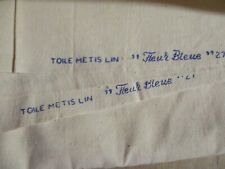 TOILE METIS LIN - " Fleur Bleue " 27
TOILE METIS LIN " Fleur Bleue "